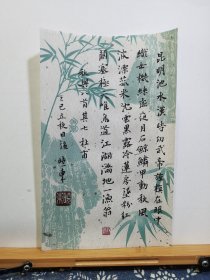 昆明池水漢時功武帝旌旗在眼中
織女機絲虚夜月石鯨鱗甲動秋風
波漂菰米沉雲黑露冷蓮房墜粉紅
關塞極天唯鳥道江湖滿地一漁翁
秋興八首其七杜甫
巳立秋日後